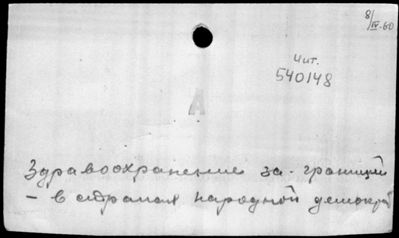 8/IV-60
Чит.
540148
А
Здравоохранение за-границей
- в странах народной демокра